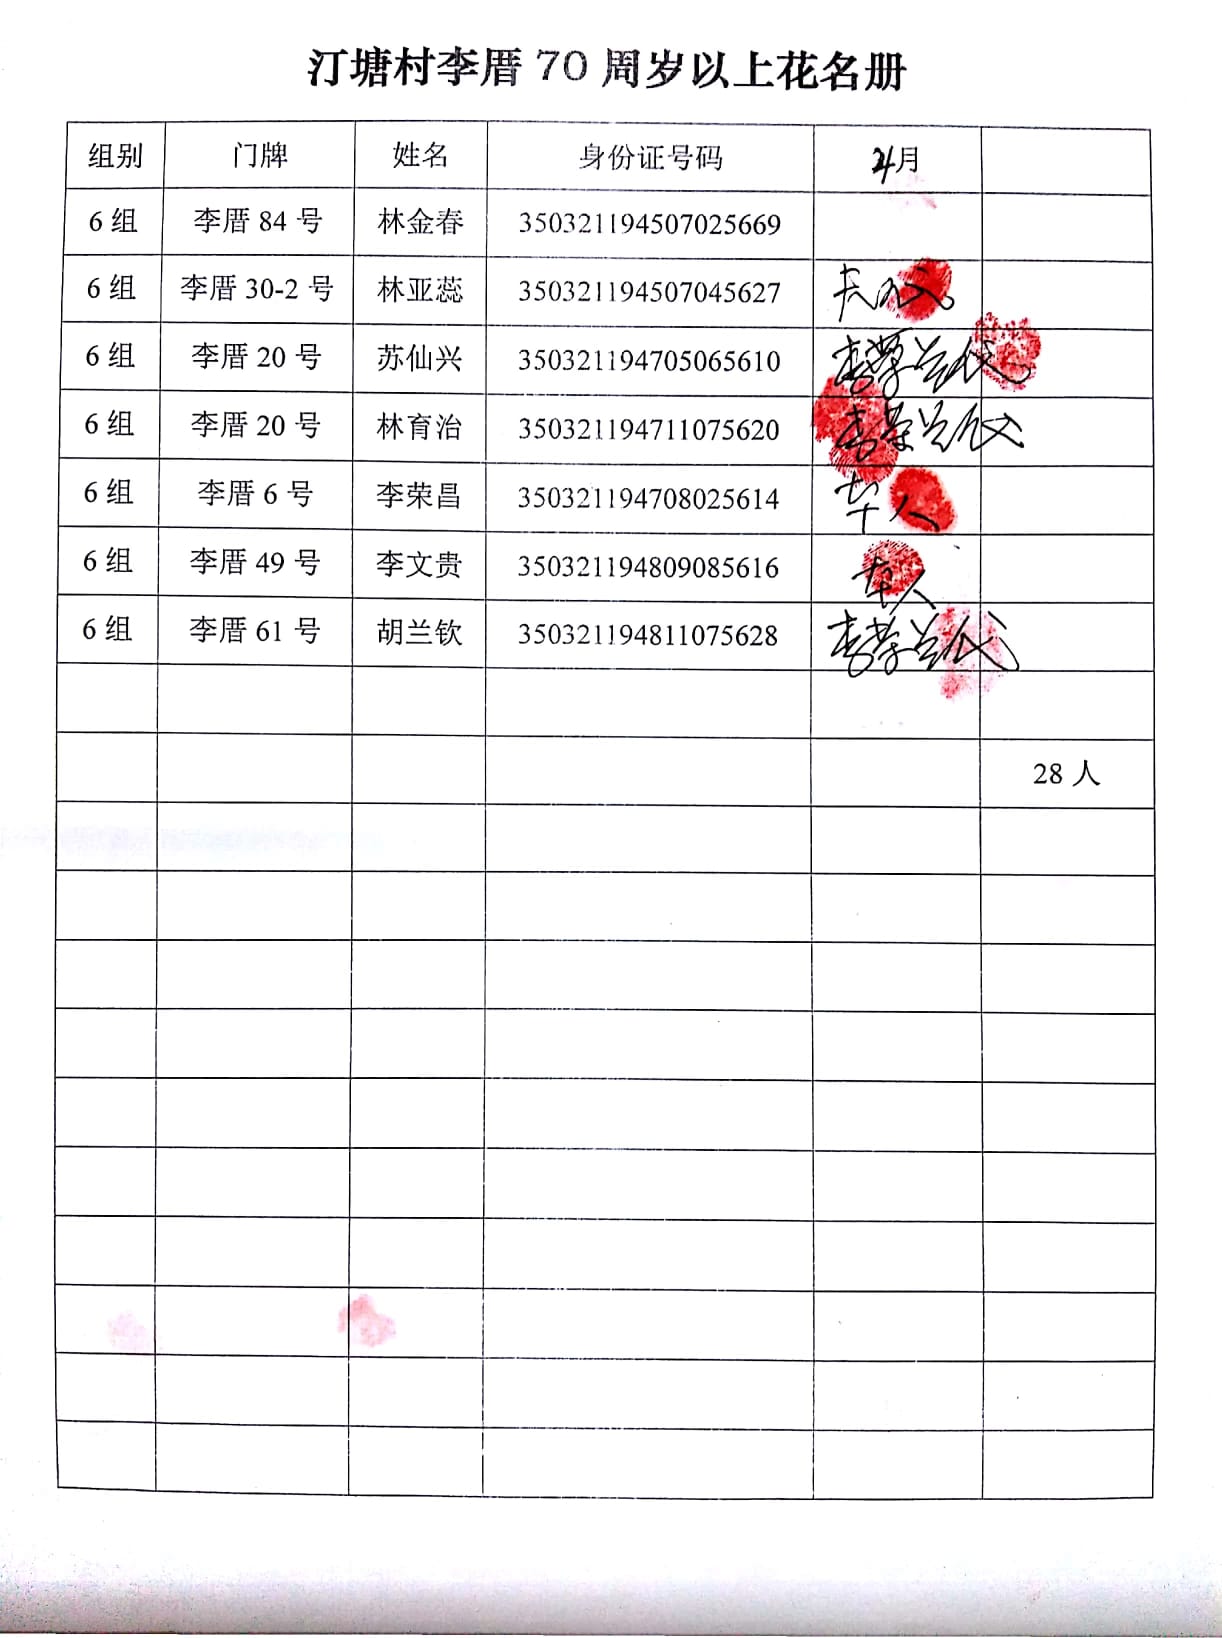 汀塘村李厝 70 周岁以上花名册
组别 门牌 姓名 身份证号码 4月
6 组 李厝 84 号 林金春 350321194507025669
6 组 李厝 30-2 号 林亚蕊 350321194507045627
6 组 李厝 20 号 苏仙兴 350321194705065610 李荣兰代
6 组 李厝 20 号 林育治 350321194711075620 李荣兰代
6 组 李厝 6 号 李荣昌 350321194708025614 本人
6 组 李厝 49 号 李文贵 350321194809085616 本人
6 组 李厝 61 号 胡兰钦 350321194811075628 李荣兰代
28 人